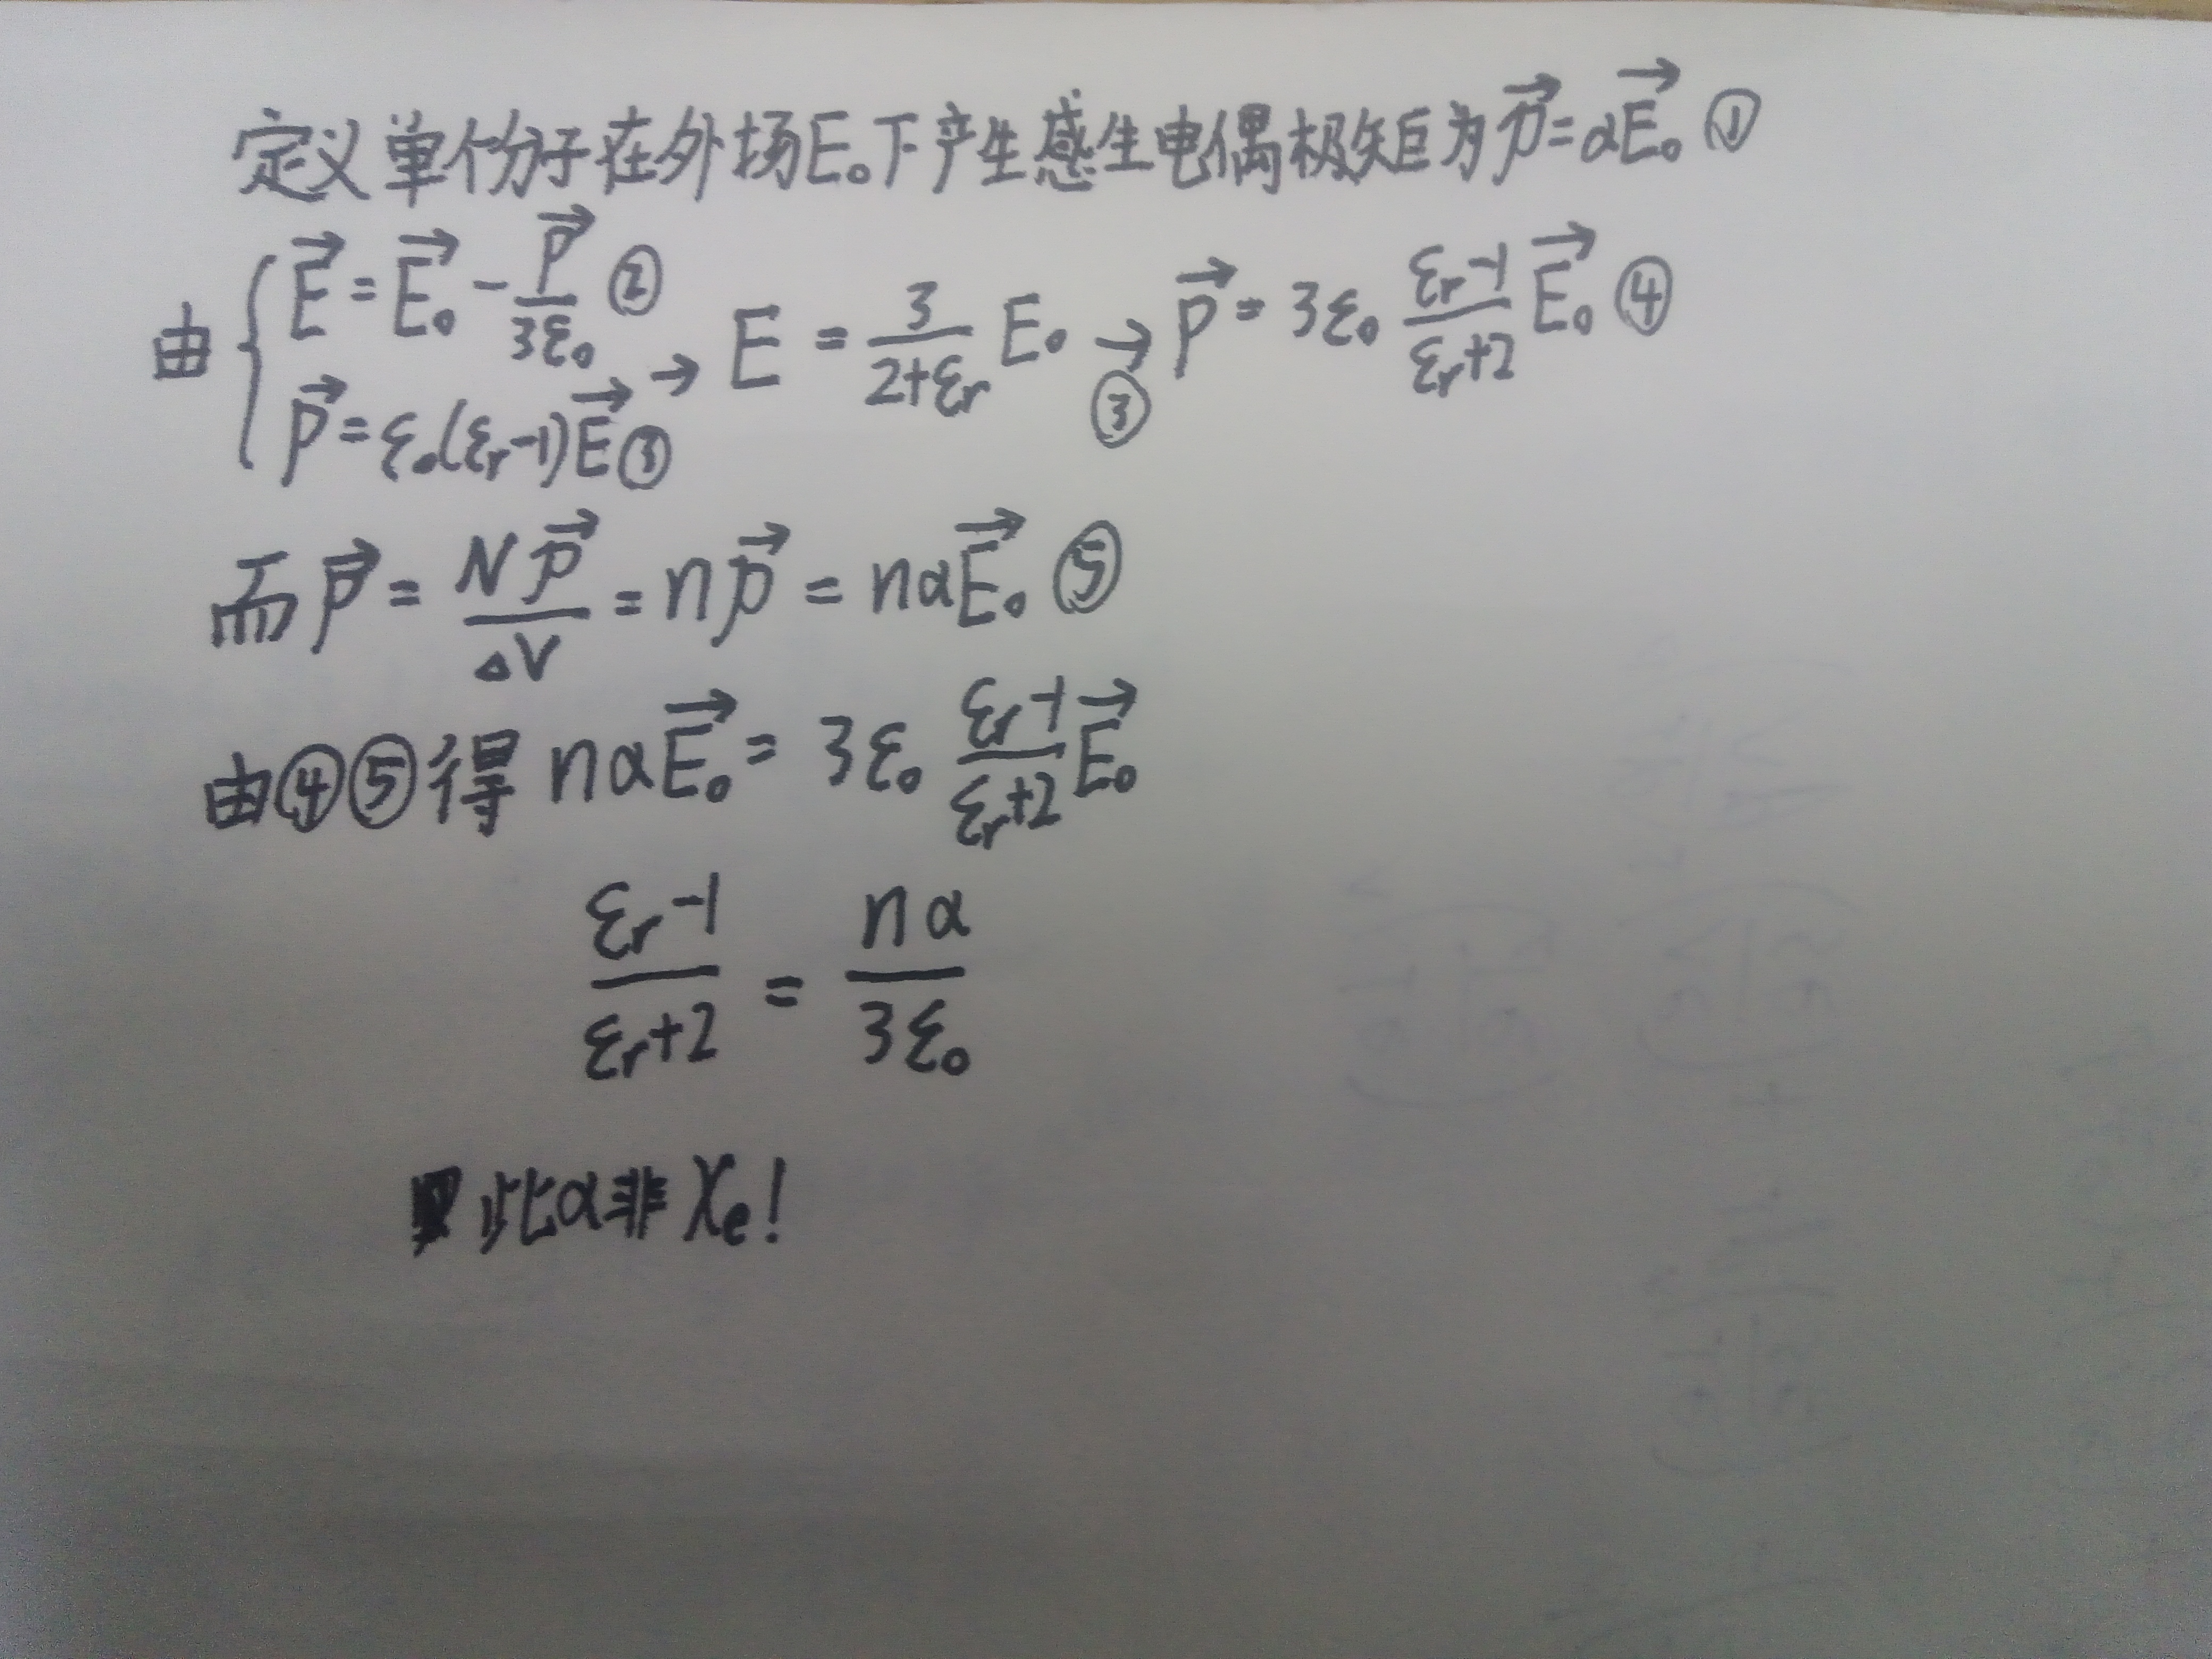 定义单个分子在外场E₀下产生感生电偶极矩为p⃗=αE⃗₀ ①
由 { E⃗ = E⃗₀ - P⃗/3ε₀ ②
P⃗ = ε₀(εr-1)E⃗ ③ → E = 3/(2+εr) E₀ →③ P⃗ = 3ε₀ (εr-1)/(εr+2) E⃗₀ ④
而P⃗ = Np⃗/ΔV = np⃗ = nαE⃗₀ ⑤
由④⑤得 nαE⃗₀ = 3ε₀ (εr-1)/(εr+2) E⃗₀
(εr-1)/(εr+2) = nα/3ε₀
此α非χe!